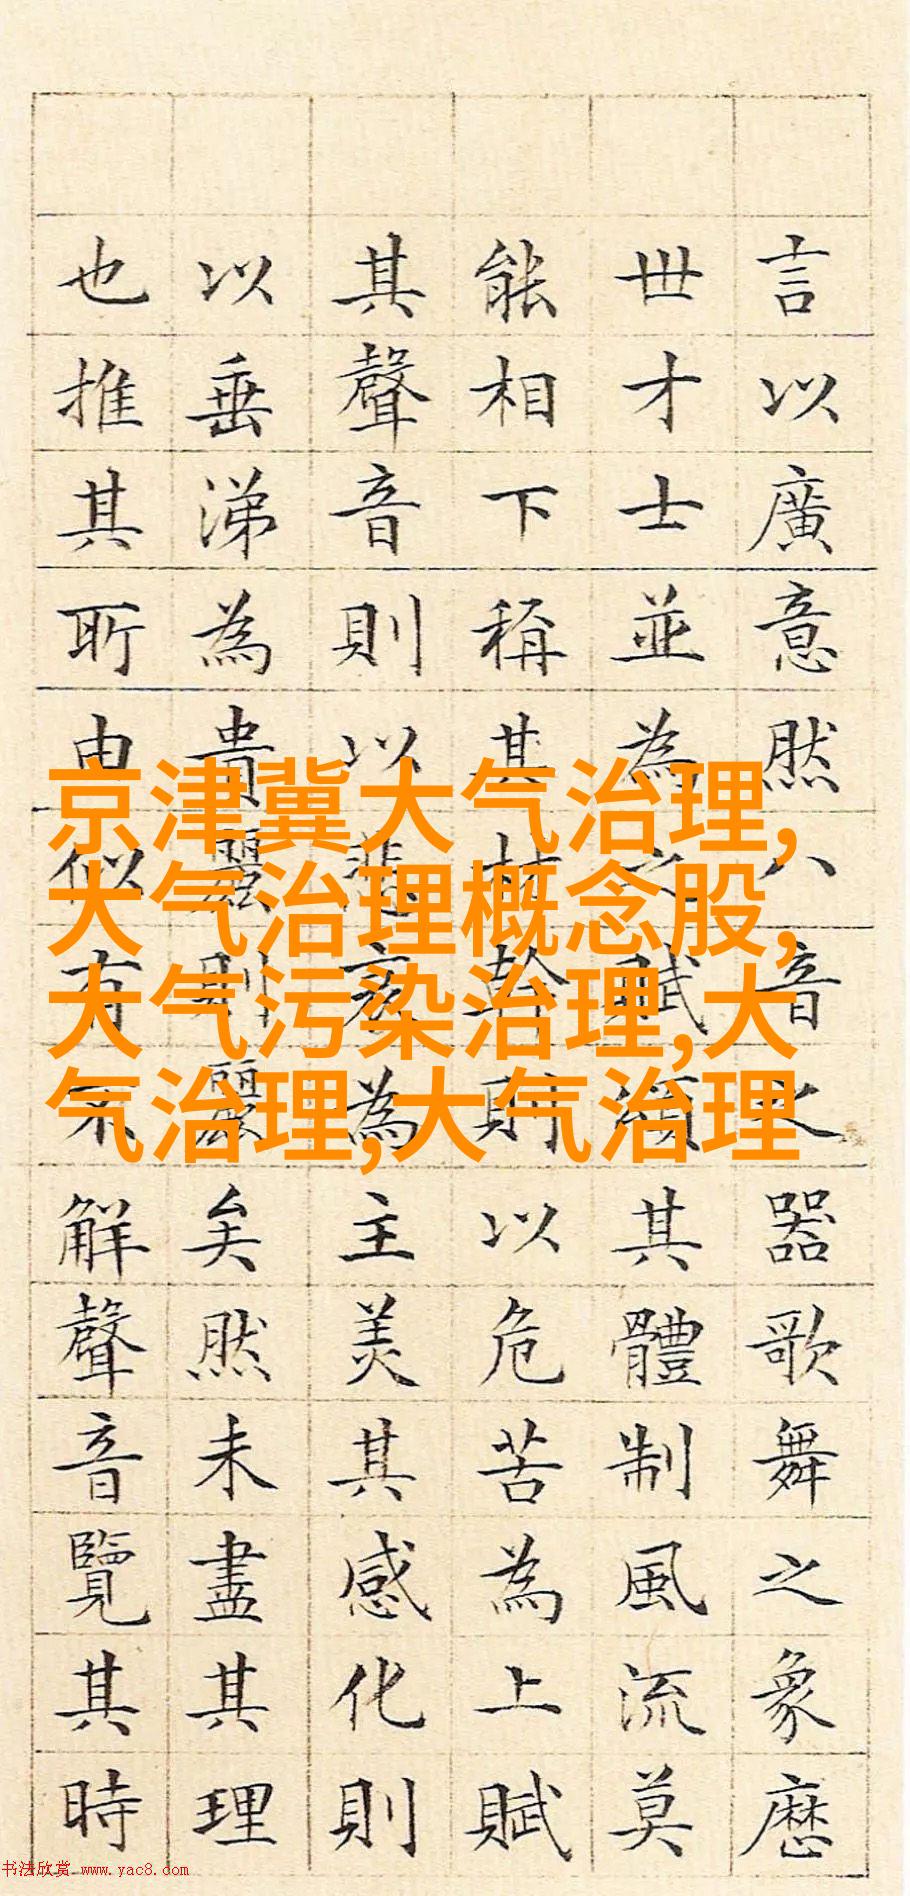 言以廣意然八音之器歌舞之象歷
世才士並為之賦頌其體制風流莫
能相下稱其材幹則以危苦為上賦
其聲音則以悲哀為主美其感化則
以垂涕為貴麗則麗矣然未盡其理
也推其所由似有不解聲音覽其時
京津冀大气治理,
大气治理概念股,
大气污染治理,大
气治理,大气治理
书法欣赏 www.yac8.com